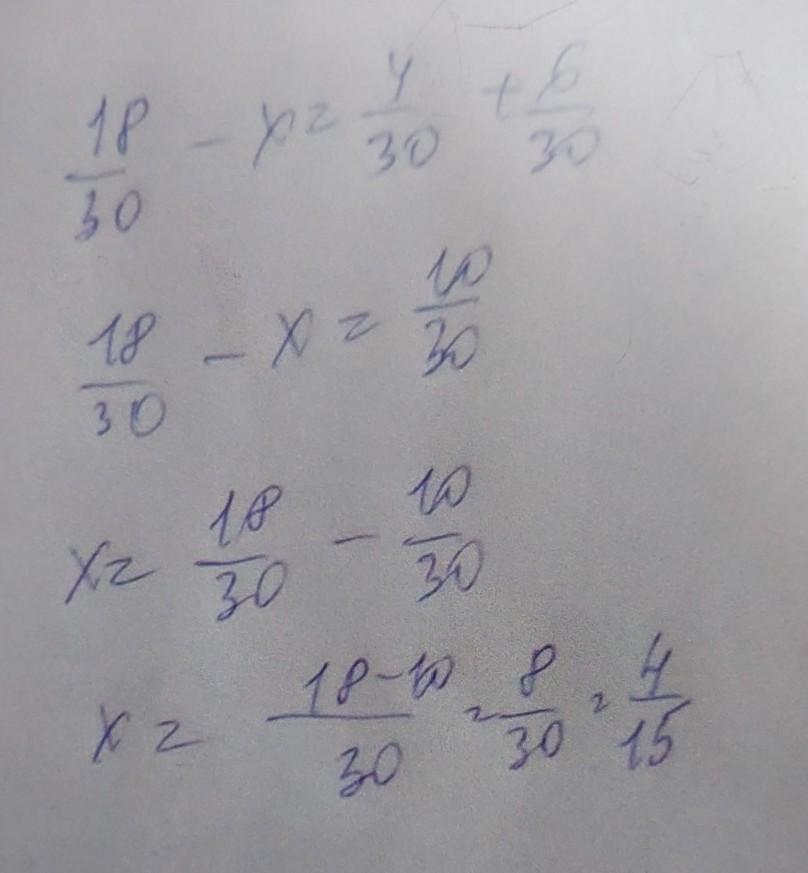 18/30 - x = 4/30 + 6/30
18/30 - x = 10/30
x = 18/30 - 10/30
x = 18-10/30 = 8/30 = 4/15